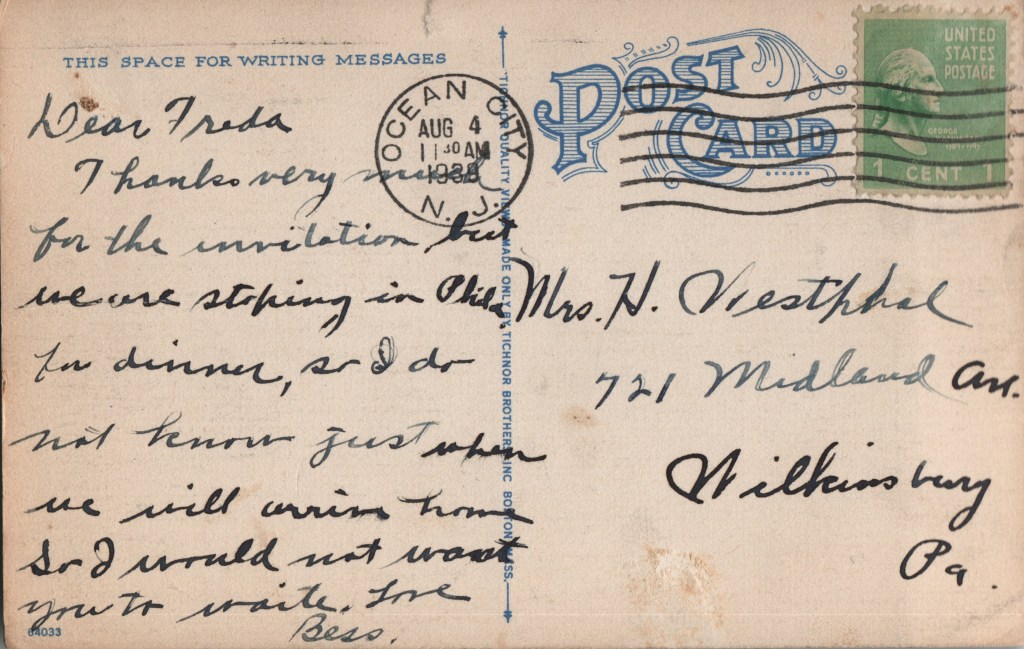 THIS SPACE FOR WRITING MESSAGES
Dear Freda
Thanks very much
for the invitation, but
we are stoping in Phila.
for dinner, so I do
not know just when
we will arrive home
So I would not want
you to waite. Love
Bess.
64033
OCEAN CITY
AUG 4
11 30 AM
1938
N. J.
TICHNOR QUALITY VIEWS MADE ONLY BY TICHNOR BROTHERS INC BOSTON MASS.
POST
CARD
UNITED
STATES
POSTAGE
GEORGE
1 CENT 1
Mrs. H. Westphal
721 Midland Ave.
Wilkinsburg
Pa.